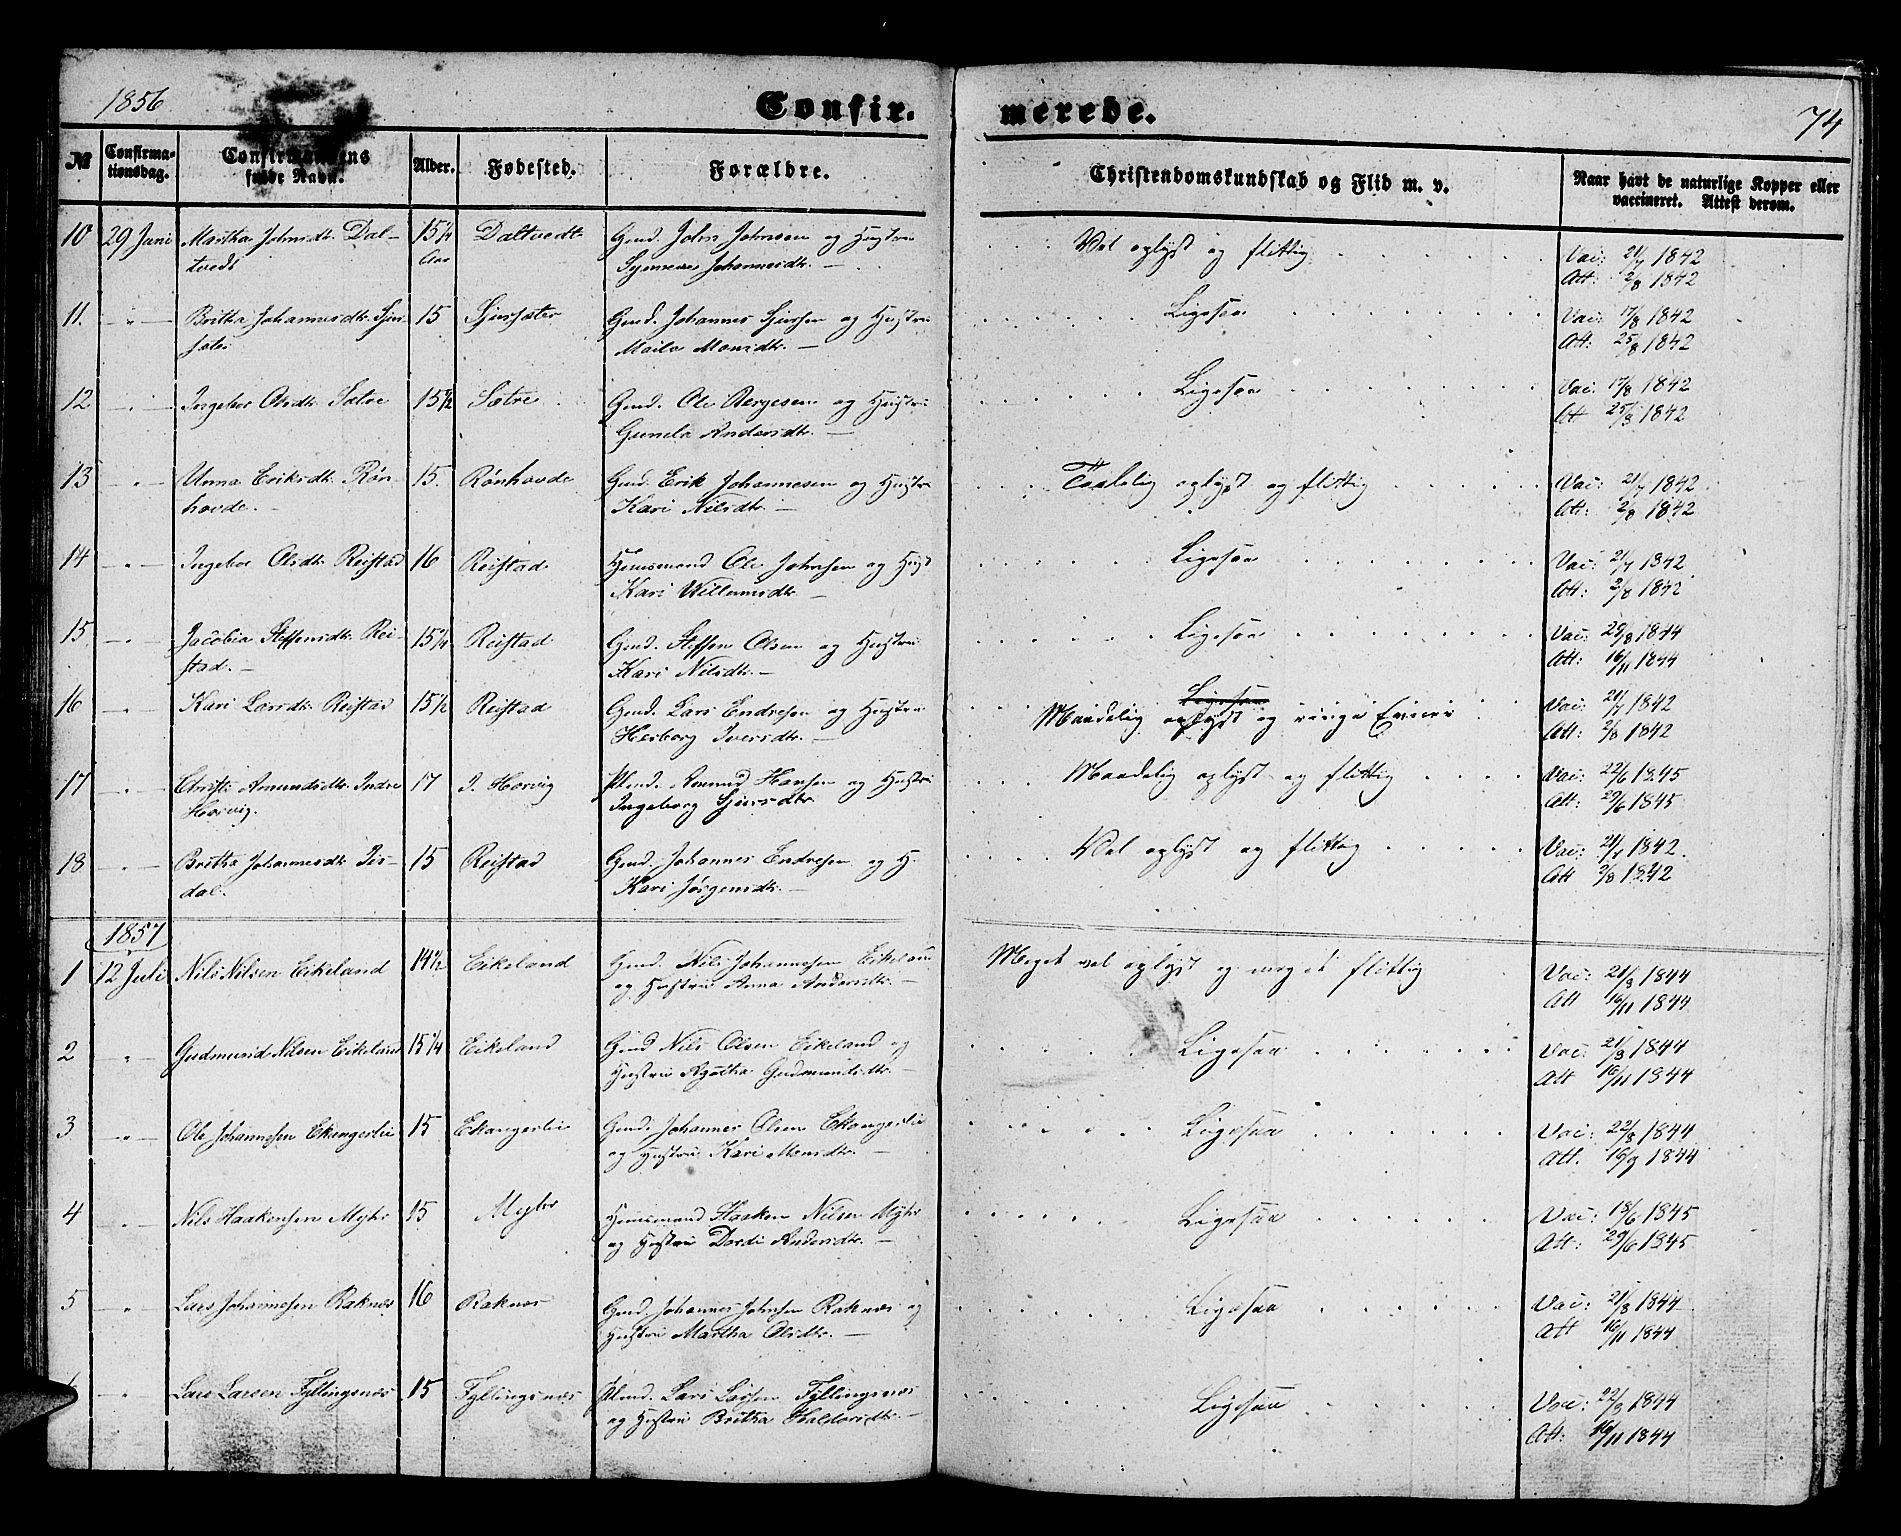 1856
Confir. merede. 74
№ Confirma-tionsdag. Confirmandens fulde Navn. Alder. Fødested. Forældre. Christendomskundskab og Flid m. v. Naar havt de naturlige Kopper eller vaccineret. Attest derom.
10 29 Juni Martha Johnsdtr. Dal- 15¼ Daltvedt Gmd. John Johnsen og Hustru Vel oplyst og flittig Vac: 21/7 1842
tvedt Aar Johannesdtr. Att: 2/8 1842
11. Britha Johannesdtr. Sjur- 15 Sjursæter Gmd. Johannes Sjursen og Hustru Ligesaa Vac: 17/8 1842
sæter Monsdtr. Att: 25/8 1842
12 Ingebor Olsdtr. Sætre 15½ Sætre Gmd. Ole Børgesen og Hustru Ligesaa Vac: 17/8 1842
Gunela Andersdtr. Att 25/8 1842
13 Unna Eriksdtr. Røn- 15. Rønhovde Gmd. Erik Johannesen og Hustru Taalelig oplyst og flittig Vac: 21/7 1842
hovde. Kari Nilsdtr. Att: 2/8 1842
14 Ingebor Olsdtr. Reistad 16 Reistad Huusmand Ole Johnsen og Hust Ligesaa Vac: 21/7 1842
Kari Willumsdtr. Att: 2/8 1842
15 Jacobia Steffensdtr. Rei- 15¼ Reistad Gmd. Steffen Olsen og Hustru Ligesaa Vac: 29/8 1844
stad. Kari Nilsdtr. Att: 16/11 1844
16 Kari Larsdtr. Reistad 15½ Reistad Gmd. Lars Endresen og Hustru Ligesaa Vac: 21/7 1842
Herborg Iversdtr. Maadelig oplyst og ringe Evner Att: 2/8 1842
17 Christi Amundsdtr. Indre 17 I. Horvig Amund Hansen og Hustru Maadelig oplyst og flittig Vac: 22/6 1845
Horvig. Ingeborg Sjursdtr. Att: 29/6 1845
18 Britha Johannesdtr. Tis- 15 Reistad Gmd. Johannes Endresen og H. Vel oplyst og flittig Vac: 21/7 1842
dal. Kari Jørgensdtr. Att 2/8 1842
1857
1 12 Juli Nils Nilsen Eikeland 14½ Eikeland Gmd. Nils Johannesen Eikeland Meget vel oplyst og meget flittig Vac: 21/8 1844
og Hustru Anna Andersdtr. Att 16/11 1844
2 Gudmund Nilsen Eikeland 15¼ Eikeland Gmd Nils Olsen Eikeland og Ligesaa Vac: 21/8 1844
Hustru Agatha Gudmundsdtr. Att 16/11 1844
3 Ole Johannesen Ekangerlie 15 Ekangerlie Gmd. Johannes Olsen Ekangerlie Ligesaa Vac: 22/8 1844
og Hustru Kari Monsdtr. Att. 16/9 1844
4 Nils Haakensen Myhr 15 Myhr Huusmand Haaken Nilsen Myhr Ligesaa Vac: 18/6 1845
og Hustru Dordi Andersdtr. Att: 29/6 1845
5 Lars Johannesen Raknæs 16 Raknæs Gmd. Johannes Johnsen Raknæs og Ligesaa Vac: 21/8 1844
Hustru Martha Olsdtr. Att 16/11 1844
Lars Larsen Fyllingsnæs 15 Fyllingsnæs Lars Larsen Fyllingsnæs Ligesaa Vac: 22/8 1844
og Hustru Britha Haldorsdtr. Att: 16/11 1844